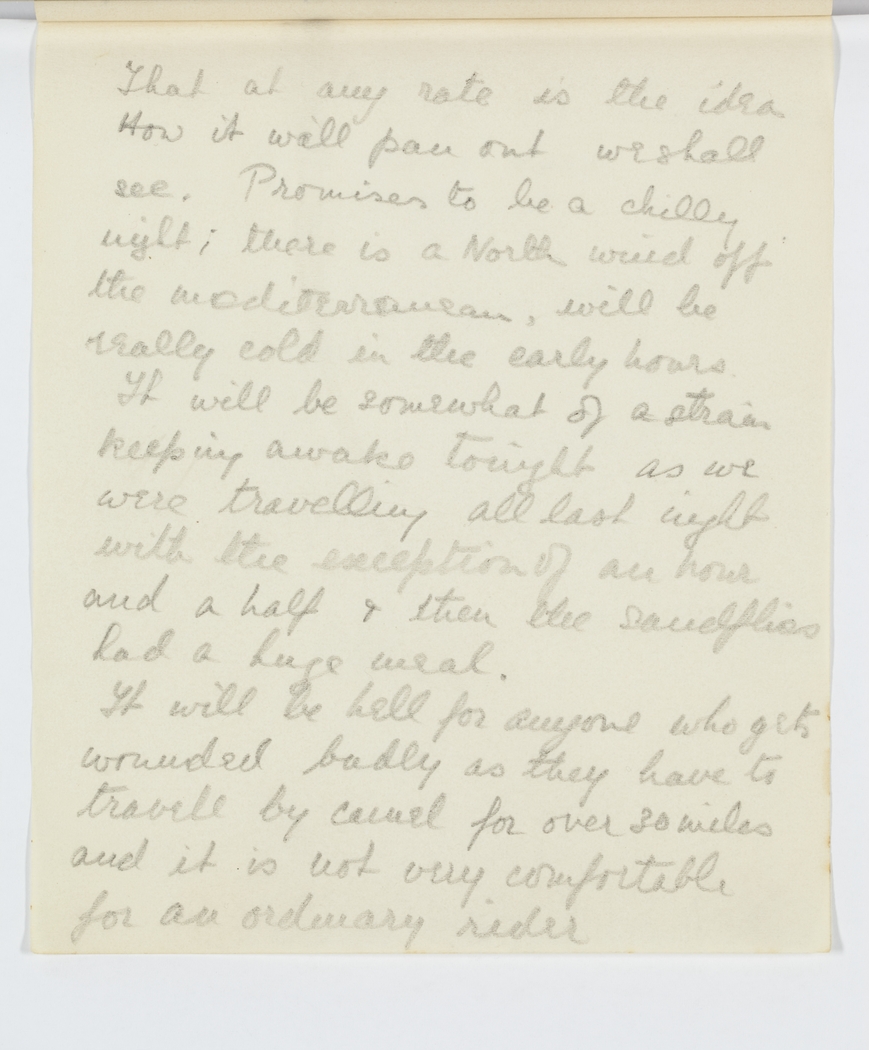 That at any rate is the idea
How it will pan out we shall
see. Promises to be a chilly
night; there is a North wind off
the mediterranean, will be
really cold in the early hours.
It will be somewhat of a strain
keeping awake tonight as we
were travelling all last night
with the exception of an hour
and a half & then the sandflies
had a huge meal.
It will be hell for anyone who gets
wounded badly as they have to
travell by camel for over 30 miles
and it is not very comfortable
for an ordinary rider